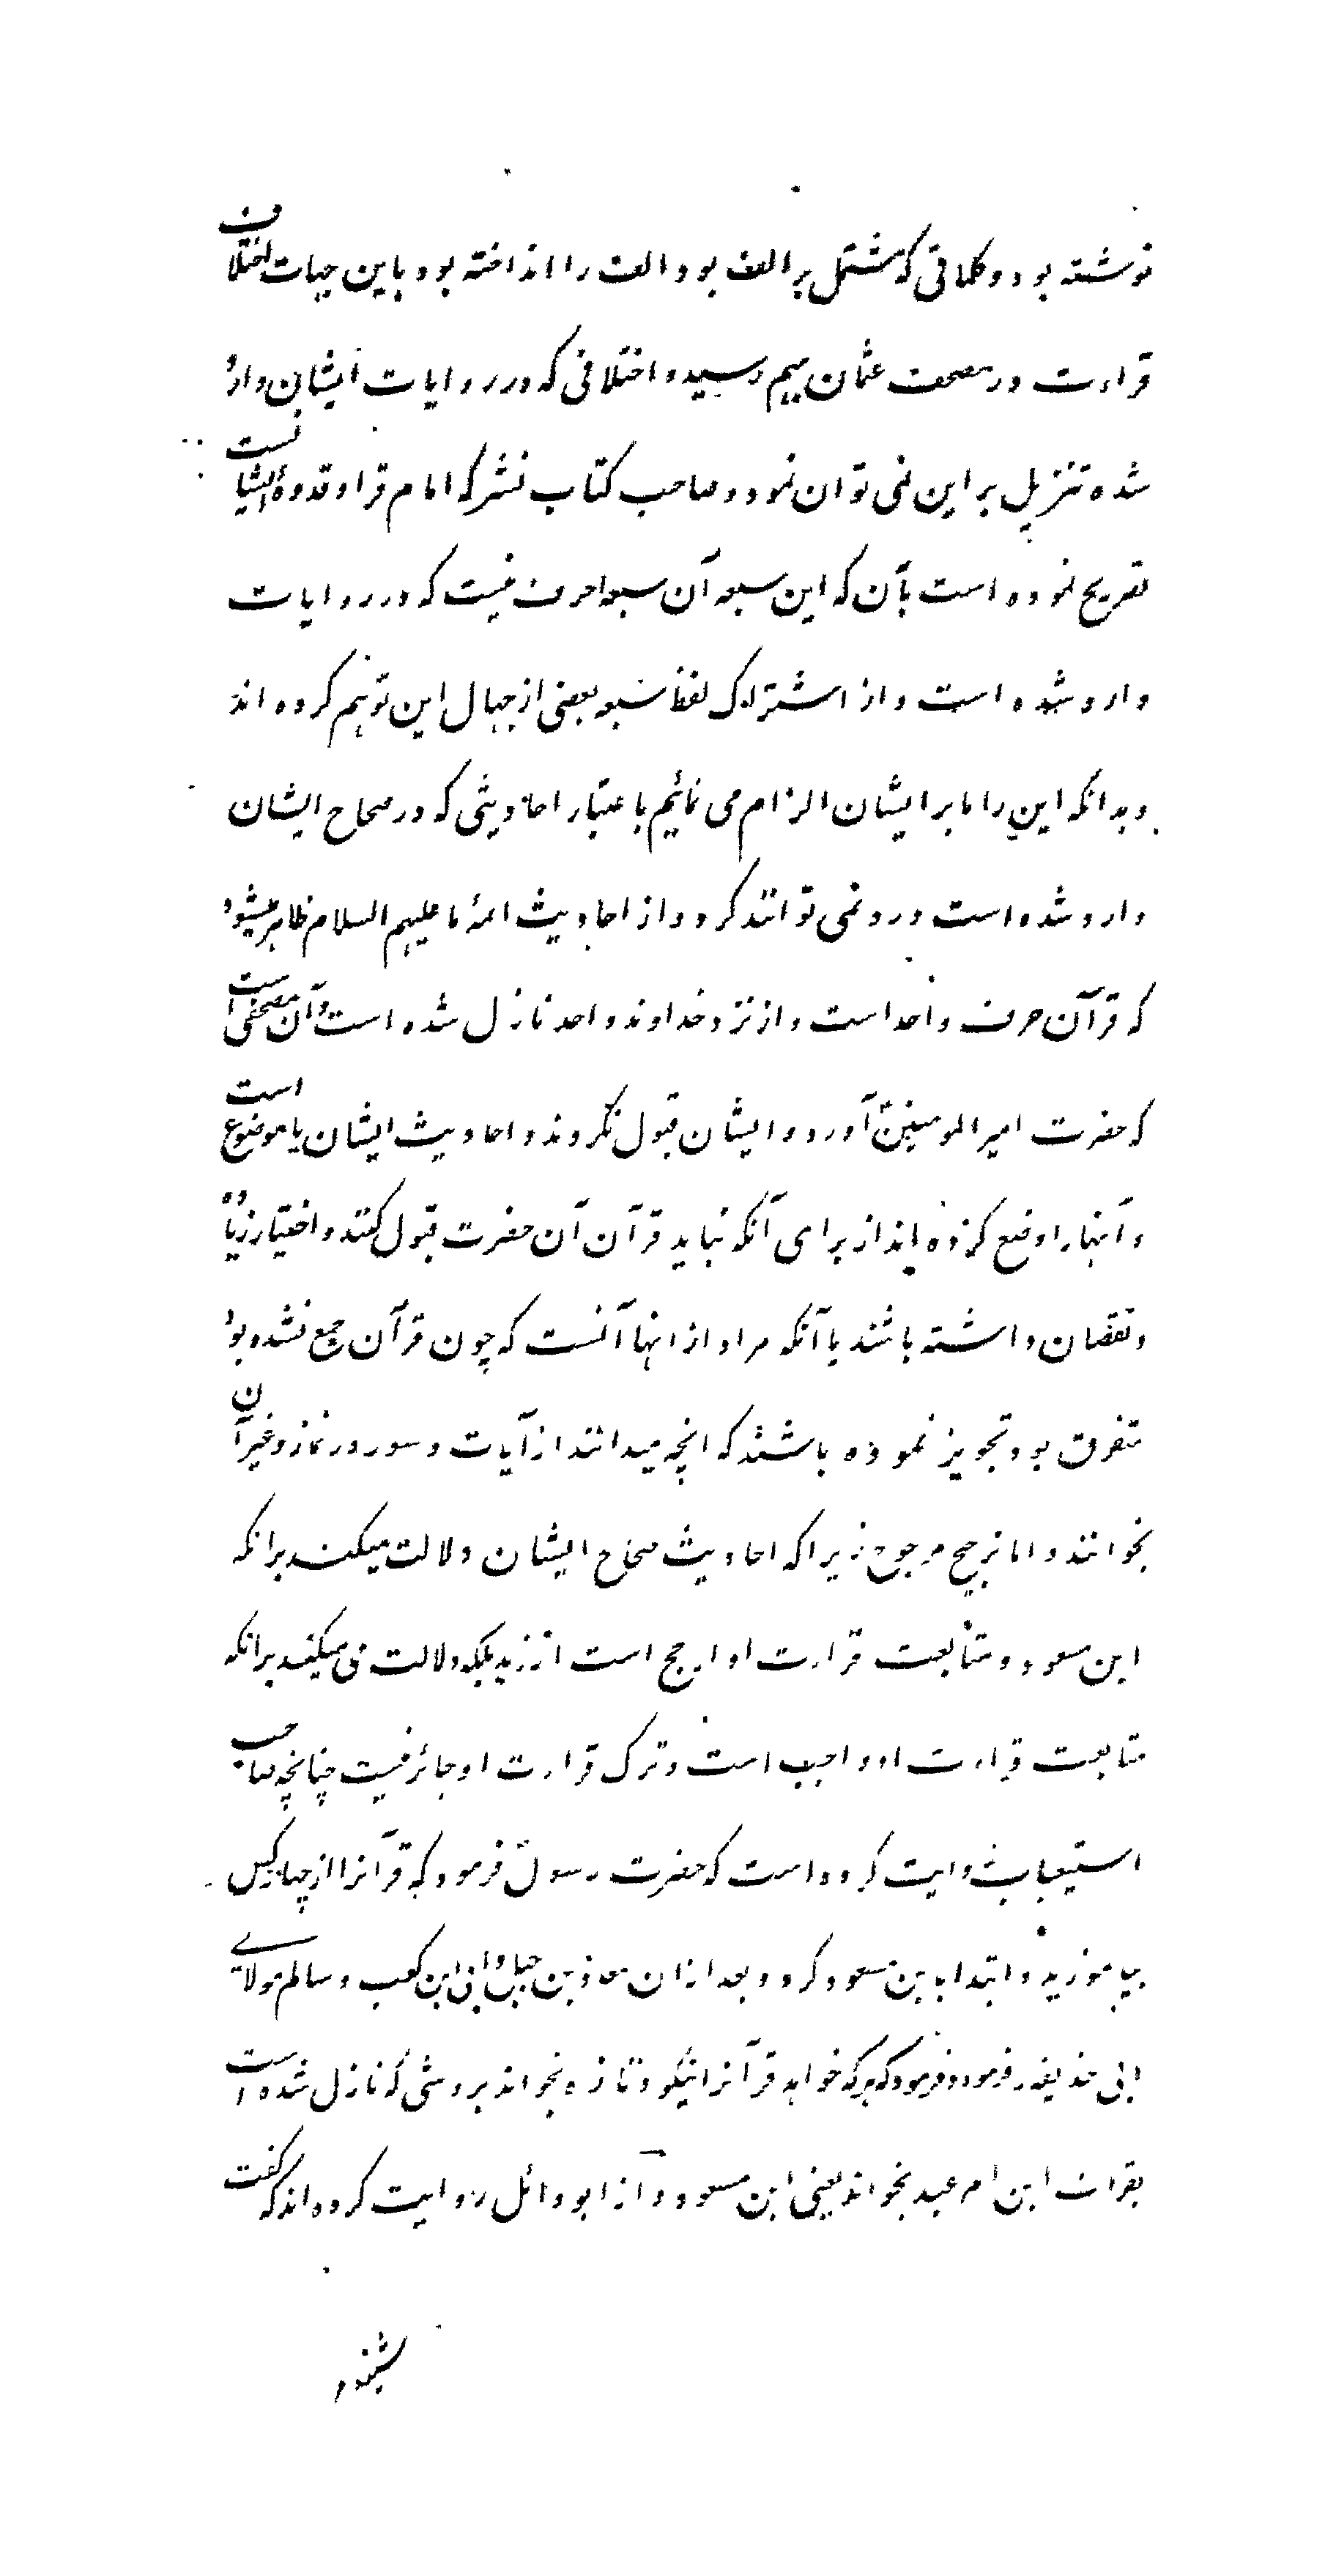 نوشته بود و کلماتی که مشتمل بر الف بود الف را انداخته بود باین جهات اختلاف
قراءت در مصحف عثمان بهم رسید و اختلافی که در روایات ایشان وارد
شده تنزیل بر این نمی توان نمود و صاحب کتاب نشر که امام قرا و قدوهٔ ایشانست
تصریح نموده است بآن که این سبعه آن سبعه احرف نیست که در روایات
وارد شده است و از اشتراک لفظ سبعه بعضی از جهال این توهم کرده اند
و بدانکه این را ما بر ایشان الزام می نمائیم باعتبار احادیثی که در صحاح ایشان
وارد شده است و رد نمی توانند کرد و از احادیث ائمهٔ ما علیهم السلام ظاهر میشود
که قرآن حرف واحد است و از نزد خداوند واحد نازل شده است و آن مصحفی است
که حضرت امیر المومنینؑ آورد و ایشان قبول نکردند و احادیث ایشان یا موضوع است
و آنها را وضع کرده اند از برای آنکه نباید قرآن آن حضرت قبول کنند و اختیار زیاده
و نقصان داشته باشند یا آنکه مراد از انها آنست که چون قرآن جمع نشده بود
متفرق بود تجویز نموده باشند که انچه میدانند از آیات و سور در نماز و غیر آن
بخوانند و اما ترجیح مرجوح زیرا که احادیث صحاح ایشان دلالت میکند برانکه
ابن مسعود و متابعت قراءت او ارجح است از زید بلکه دلالت می میکند برانکه
متابعت قراءت او واجب است و ترک قراءت او جائز نیست چنانچه صاحب
استیعاب روایت کرده است که حضرت رسولؐ فرمود که قرآنرا از چهار کس
بیاموزید و ابتدا بابن مسعود کرد و بعد ازان معاذ بن جبل و ابی ابن کعب و سالم مولای
ابی حذیفه ر فرمود و فرمود که هر که خواهد قرآنرا نیکو و تازه بخواند بروشی که نازل شده است
بقراءت ابن ام عبد بخواند یعنی ابن مسعود و از ابو وائل روایت کرده اند که گفت
شنیدم